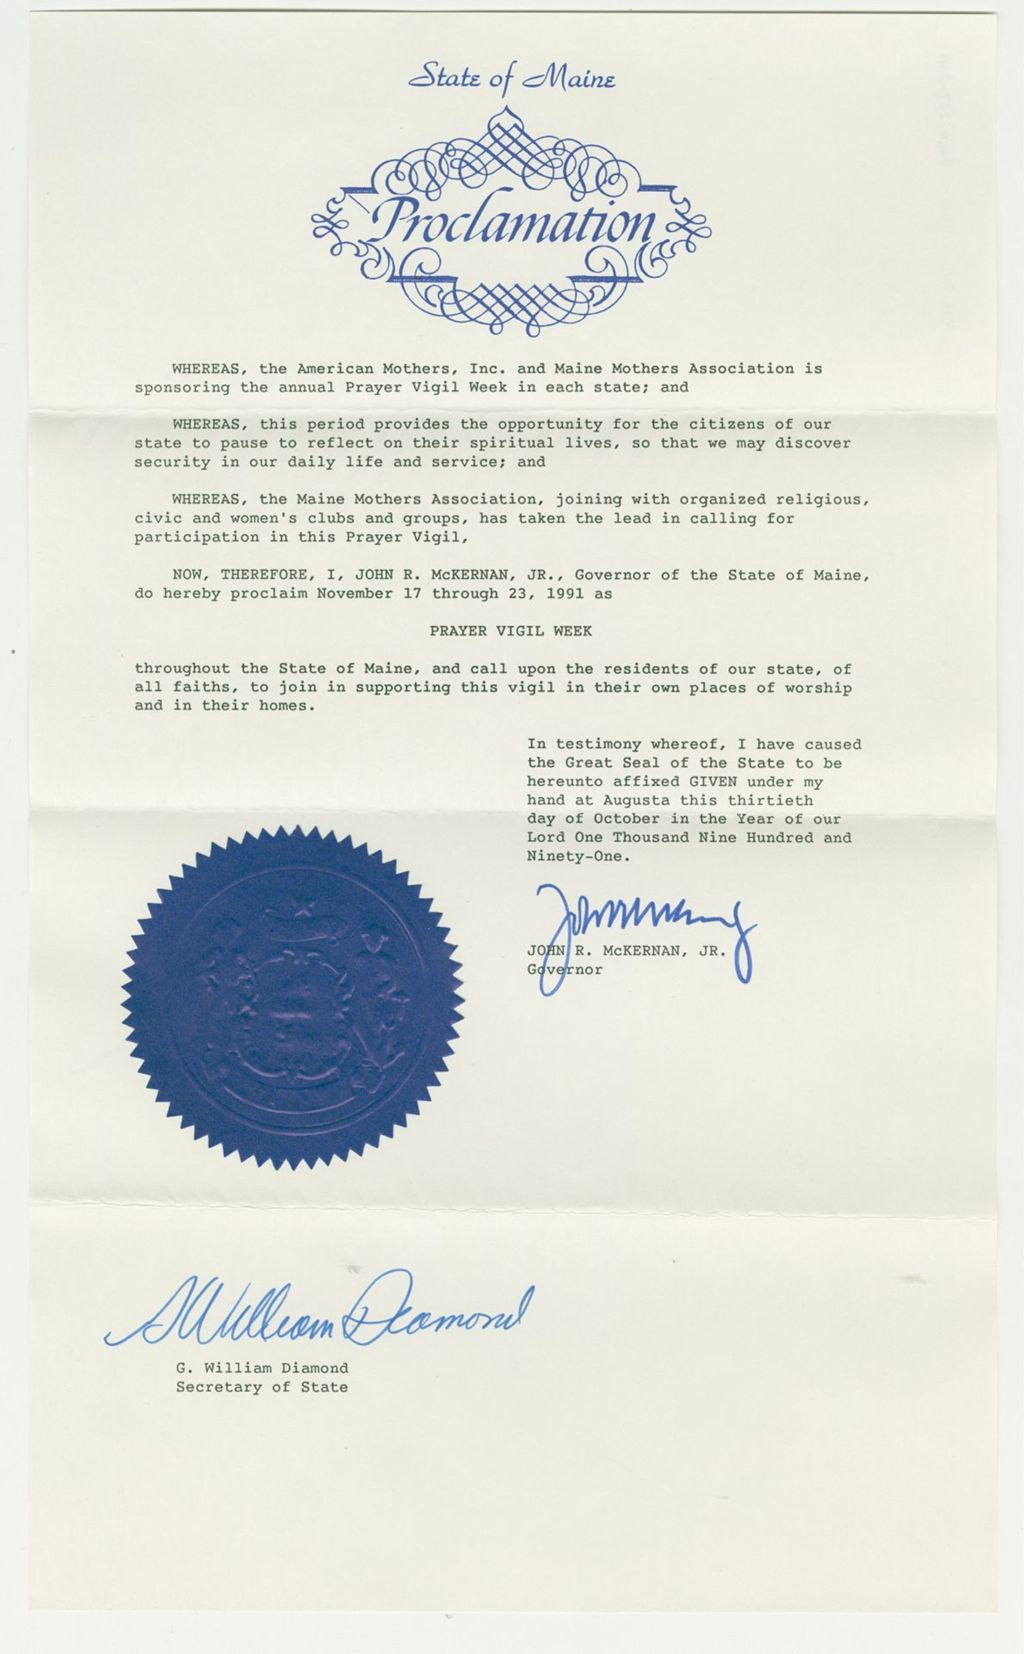 State of Maine
Proclamation
WHEREAS, the American Mothers, Inc. and Maine Mothers Association is
sponsoring the annual Prayer Vigil Week in each state; and
WHEREAS, this period provides the opportunity for the citizens of our
state to pause to reflect on their spiritual lives, so that we may discover
security in our daily life and service; and
WHEREAS, the Maine Mothers Association, joining with organized religious,
civic and women's clubs and groups, has taken the lead in calling for
participation in this Prayer Vigil,
NOW, THEREFORE, I, JOHN R. McKERNAN, JR., Governor of the State of Maine,
do hereby proclaim November 17 through 23, 1991 as
PRAYER VIGIL WEEK
throughout the State of Maine, and call upon the residents of our state, of
all faiths, to join in supporting this vigil in their own places of worship
and in their homes.
In testimony whereof, I have caused
the Great Seal of the State to be
hereunto affixed GIVEN under my
hand at Augusta this thirtieth
day of October in the Year of our
Lord One Thousand Nine Hundred and
Ninety-One.
JOHN R. McKERNAN, JR.
Governor
G William Diamond
G. William Diamond
Secretary of State